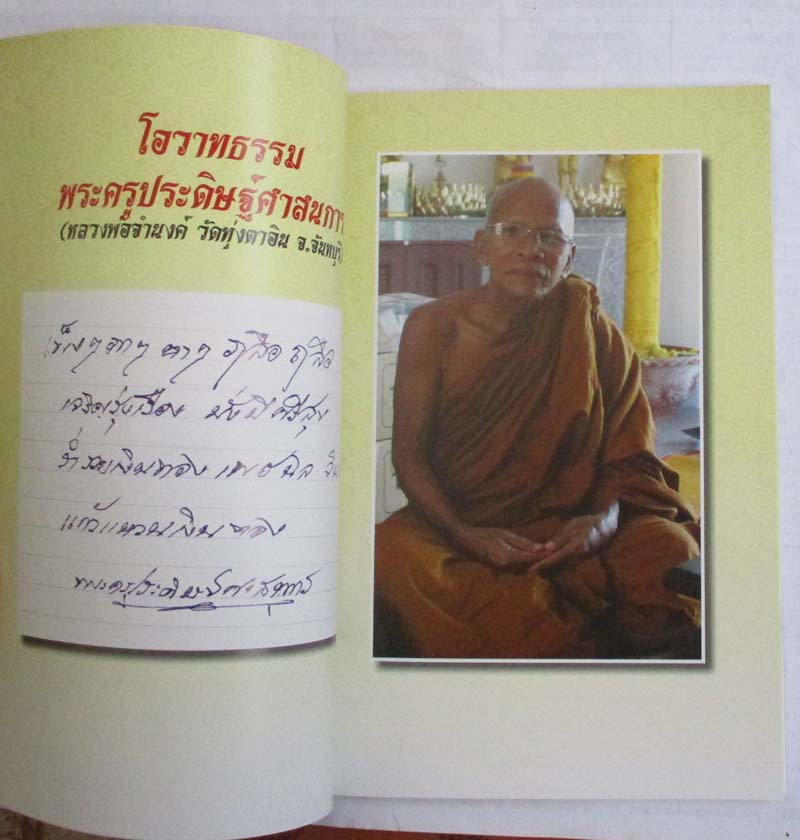 โอวาทธรรม
พระครูประดิษฐ์ศาสนการ
(หลวงพ่อจำนงค์ วัดทุ่งตาอิน จ.จันทบุรี
เฮงๆ รวยๆ เหลือ เหลือ
เจริญรุ่งเรือง มั่งมีศรีสุข
ร่ำรวยเงินทอง เพชรนิล
แก้วแหวนเงินทอง
พระครูประดิษฐ์ศาสนการ